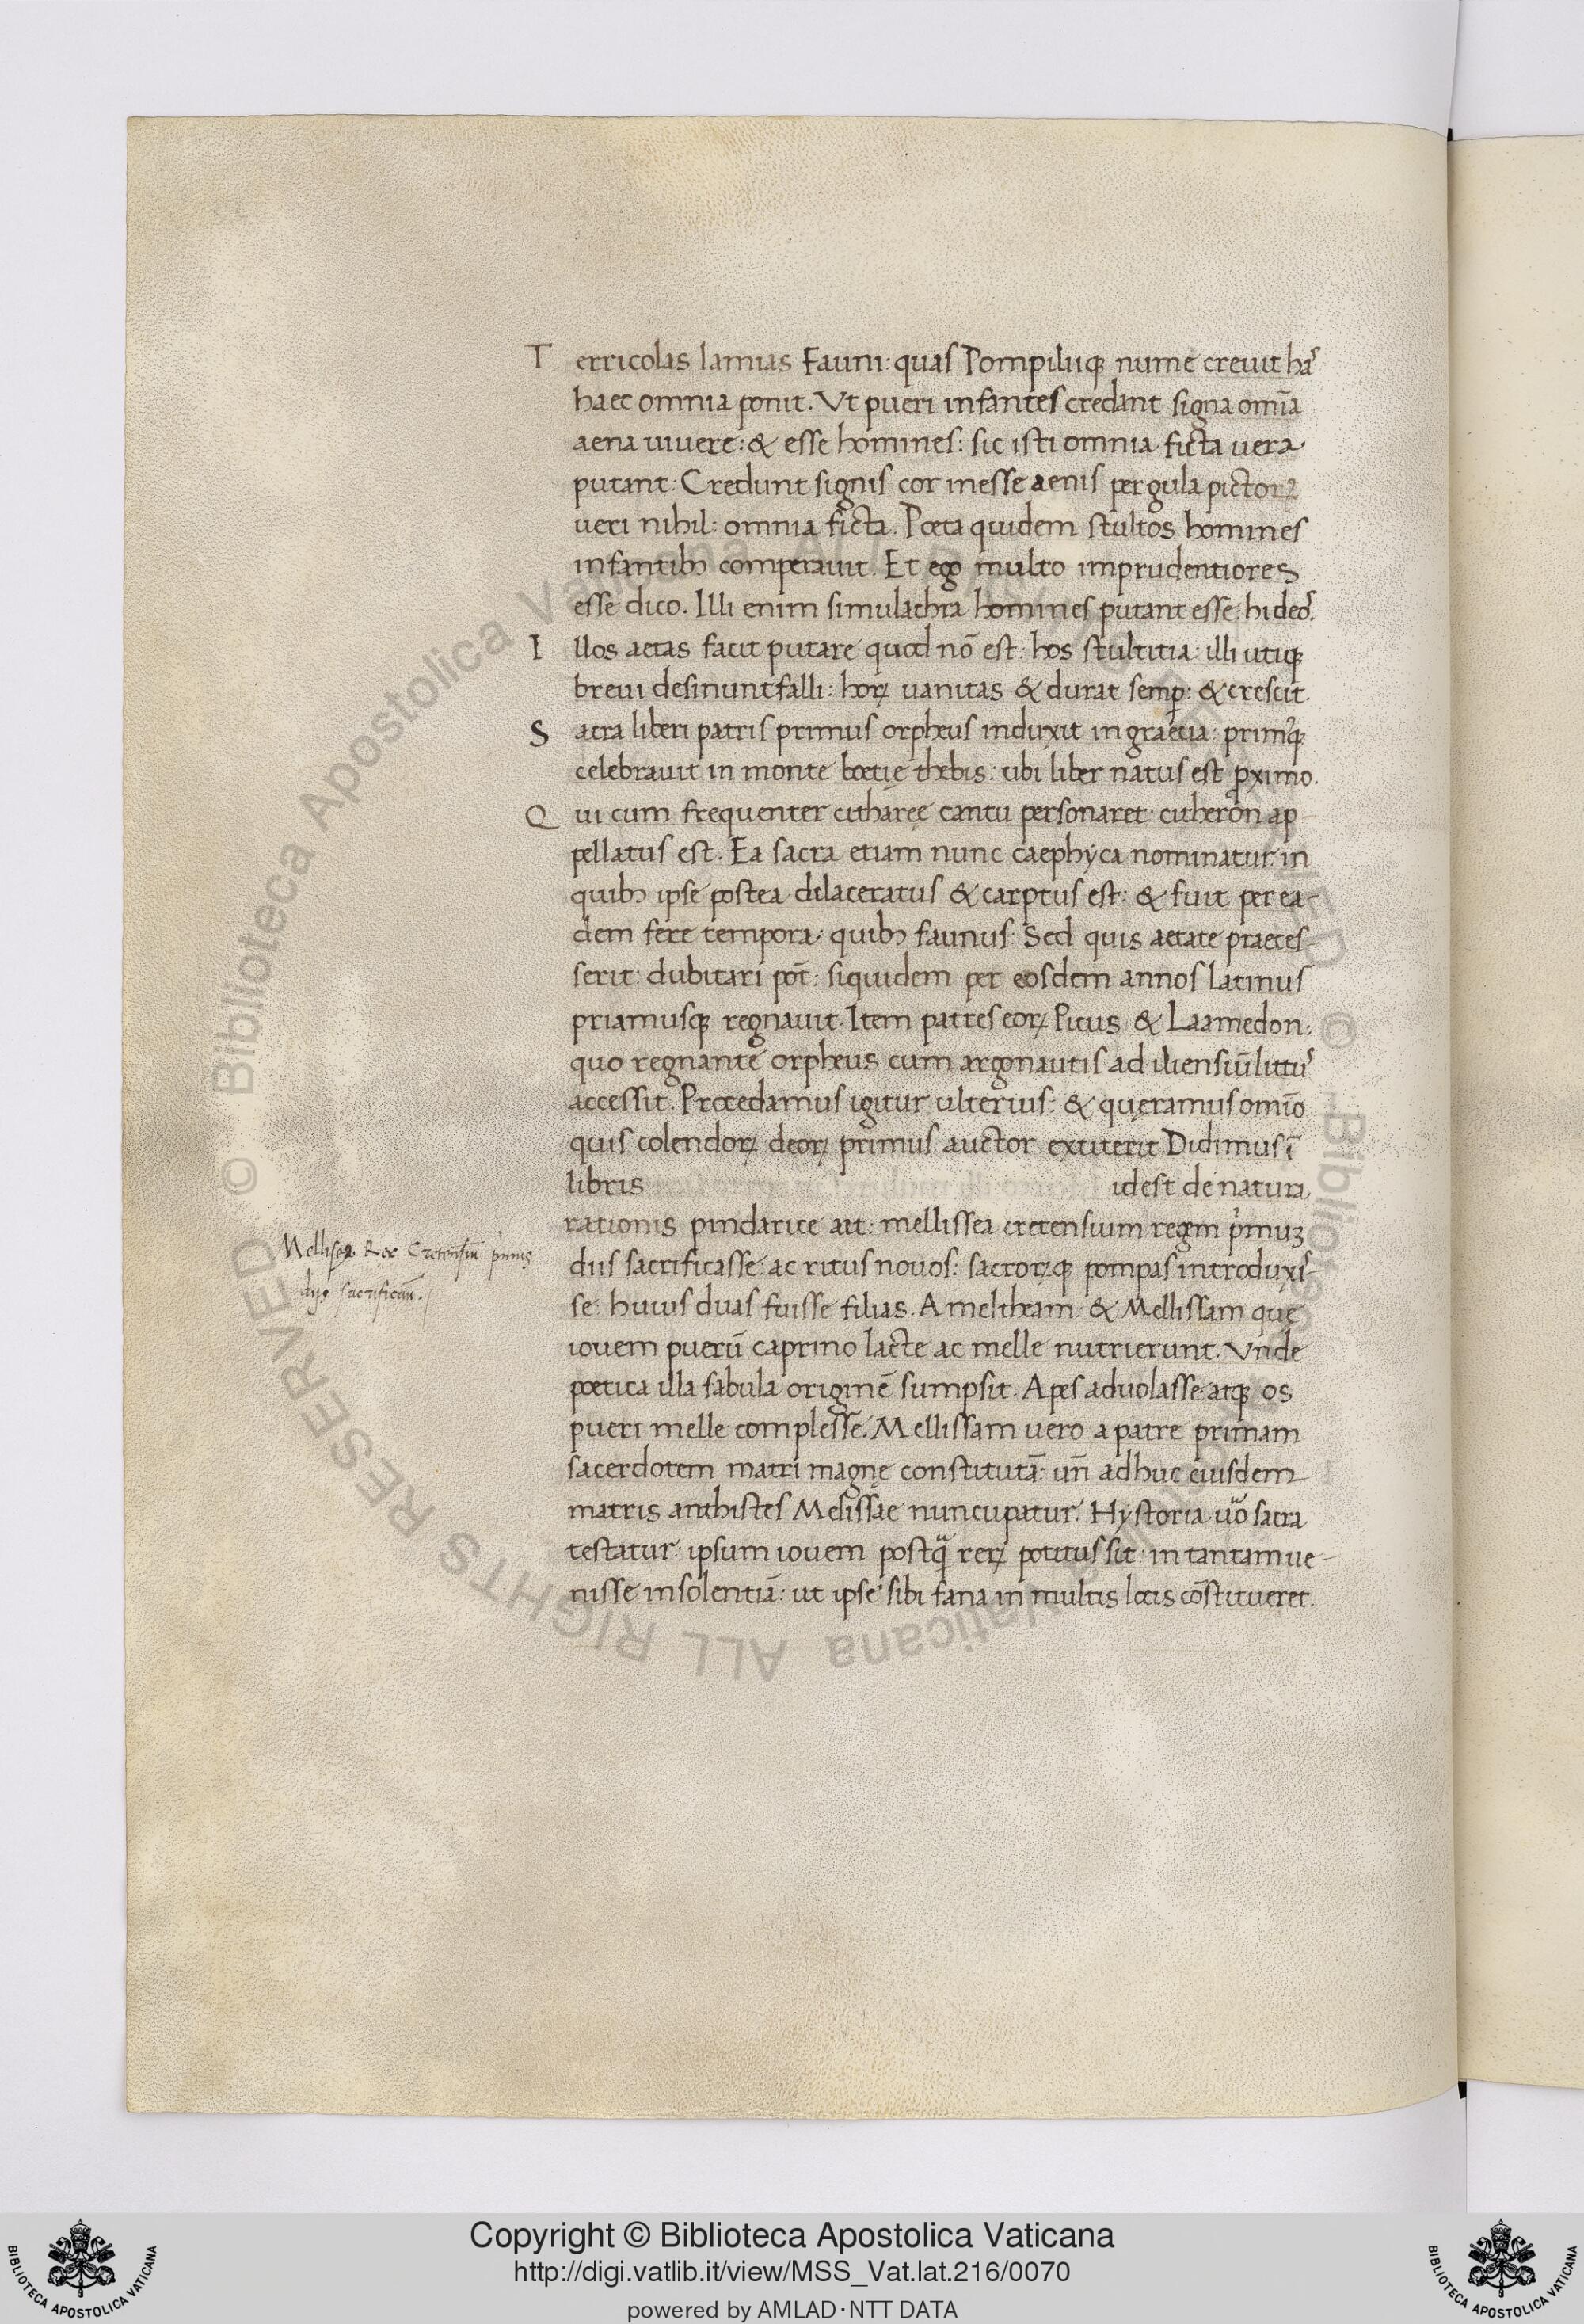 Terricolas lamias Fauni: quas Pompiliiq; nume creuit haſ
haec omnia ponit. Vt pueri infantes credant signa omīa
aena uiuere: & esse homines: sic isti omnia ficta uera
putant: Credunt signis cor inesse aenis pergula pictoꝝ
ueri nihil: omnia ficta. Poeta quidem stultos homines
infantibꝫ comperauit. Et ego multo imprudentiores
esse dico. Illi enim simulachra homines putant esse: hi deoſ.
Illos aetas facit putare quod nō est: hos stultitia: illi utiqꝫ
breui desinunt falli: hoꝝ uanitas & durat semꝑ: & crescit.
Sacra liberi patris primus orpheus induxit in graecia: primꝰqꝫ
celebrauit in monte boetię thebis: ubi liber natus est ꝓximo.
Qui cum frequenter citharęe cantu personaret: citherōn ap
pellatus est. Ea sacra etiam nunc caephyca nominatur: in
quibꝫ ipse postea dilaceratus & carptus est: & fuit per ea-
dem fere tempora: quibꝫ faunus: Sed quis aetate praeces-
serit: dubitari pōt: siquidem per eosdem annos latinus
priamusqꝫ regnauit. Item patres eoꝝ Picus & Laamedon:
quo regnante orpheus cum argonautis ad iliensiū littuſ
accessit. Procedamus igitur ulterius: & quęramus omīo
quis colendoꝝ deoꝝ primus auctor extiterit Didimus ī
libris idest de natura
rationis pindarice ait: mellissea cretensium regem pͥmuꝫ
diis sacrificasse: ac ritus nouos: sacroꝝqꝫ pompas introduxi-
se: huius duas fuisse filias. Ameltheam: & Mellissam que
iouem puerū caprino lacte ac melle nutrierunt. Vnde
poetica illa fabula originē sumpsit. Apes aduolasse: atqꝫ os
pueri melle complesse. Mellissam uero a patre primam
sacerdotem matri magnę constitutā: un̄ adhuc eiusdem
matris anthistes Melissae nuncupatur. Hystoria uͦo sacra
testatur: ipsum iouem postqͣ reꝝ potitus sit: in tantam ue-
nisse insolentiā: ut ipse sibi fana in multis locis cōstitueret.
Mellisea Rex Cretensiū pͥmus
dijs sacrificau.
© Biblioteca Apostolica Vaticana ALL RIGHTS RESERVED © Biblioteca Apostolica Vaticana ALL RIGHTS RESERVED
Copyright © Biblioteca Apostolica Vaticana
http://digi.vatlib.it/view/MSS_Vat.lat.216/0070
powered by AMLAD·NTT DATA
BIBLIOTECA APOSTOLICA VATICANA
BIBLIOTECA APOSTOLICA VATICANA